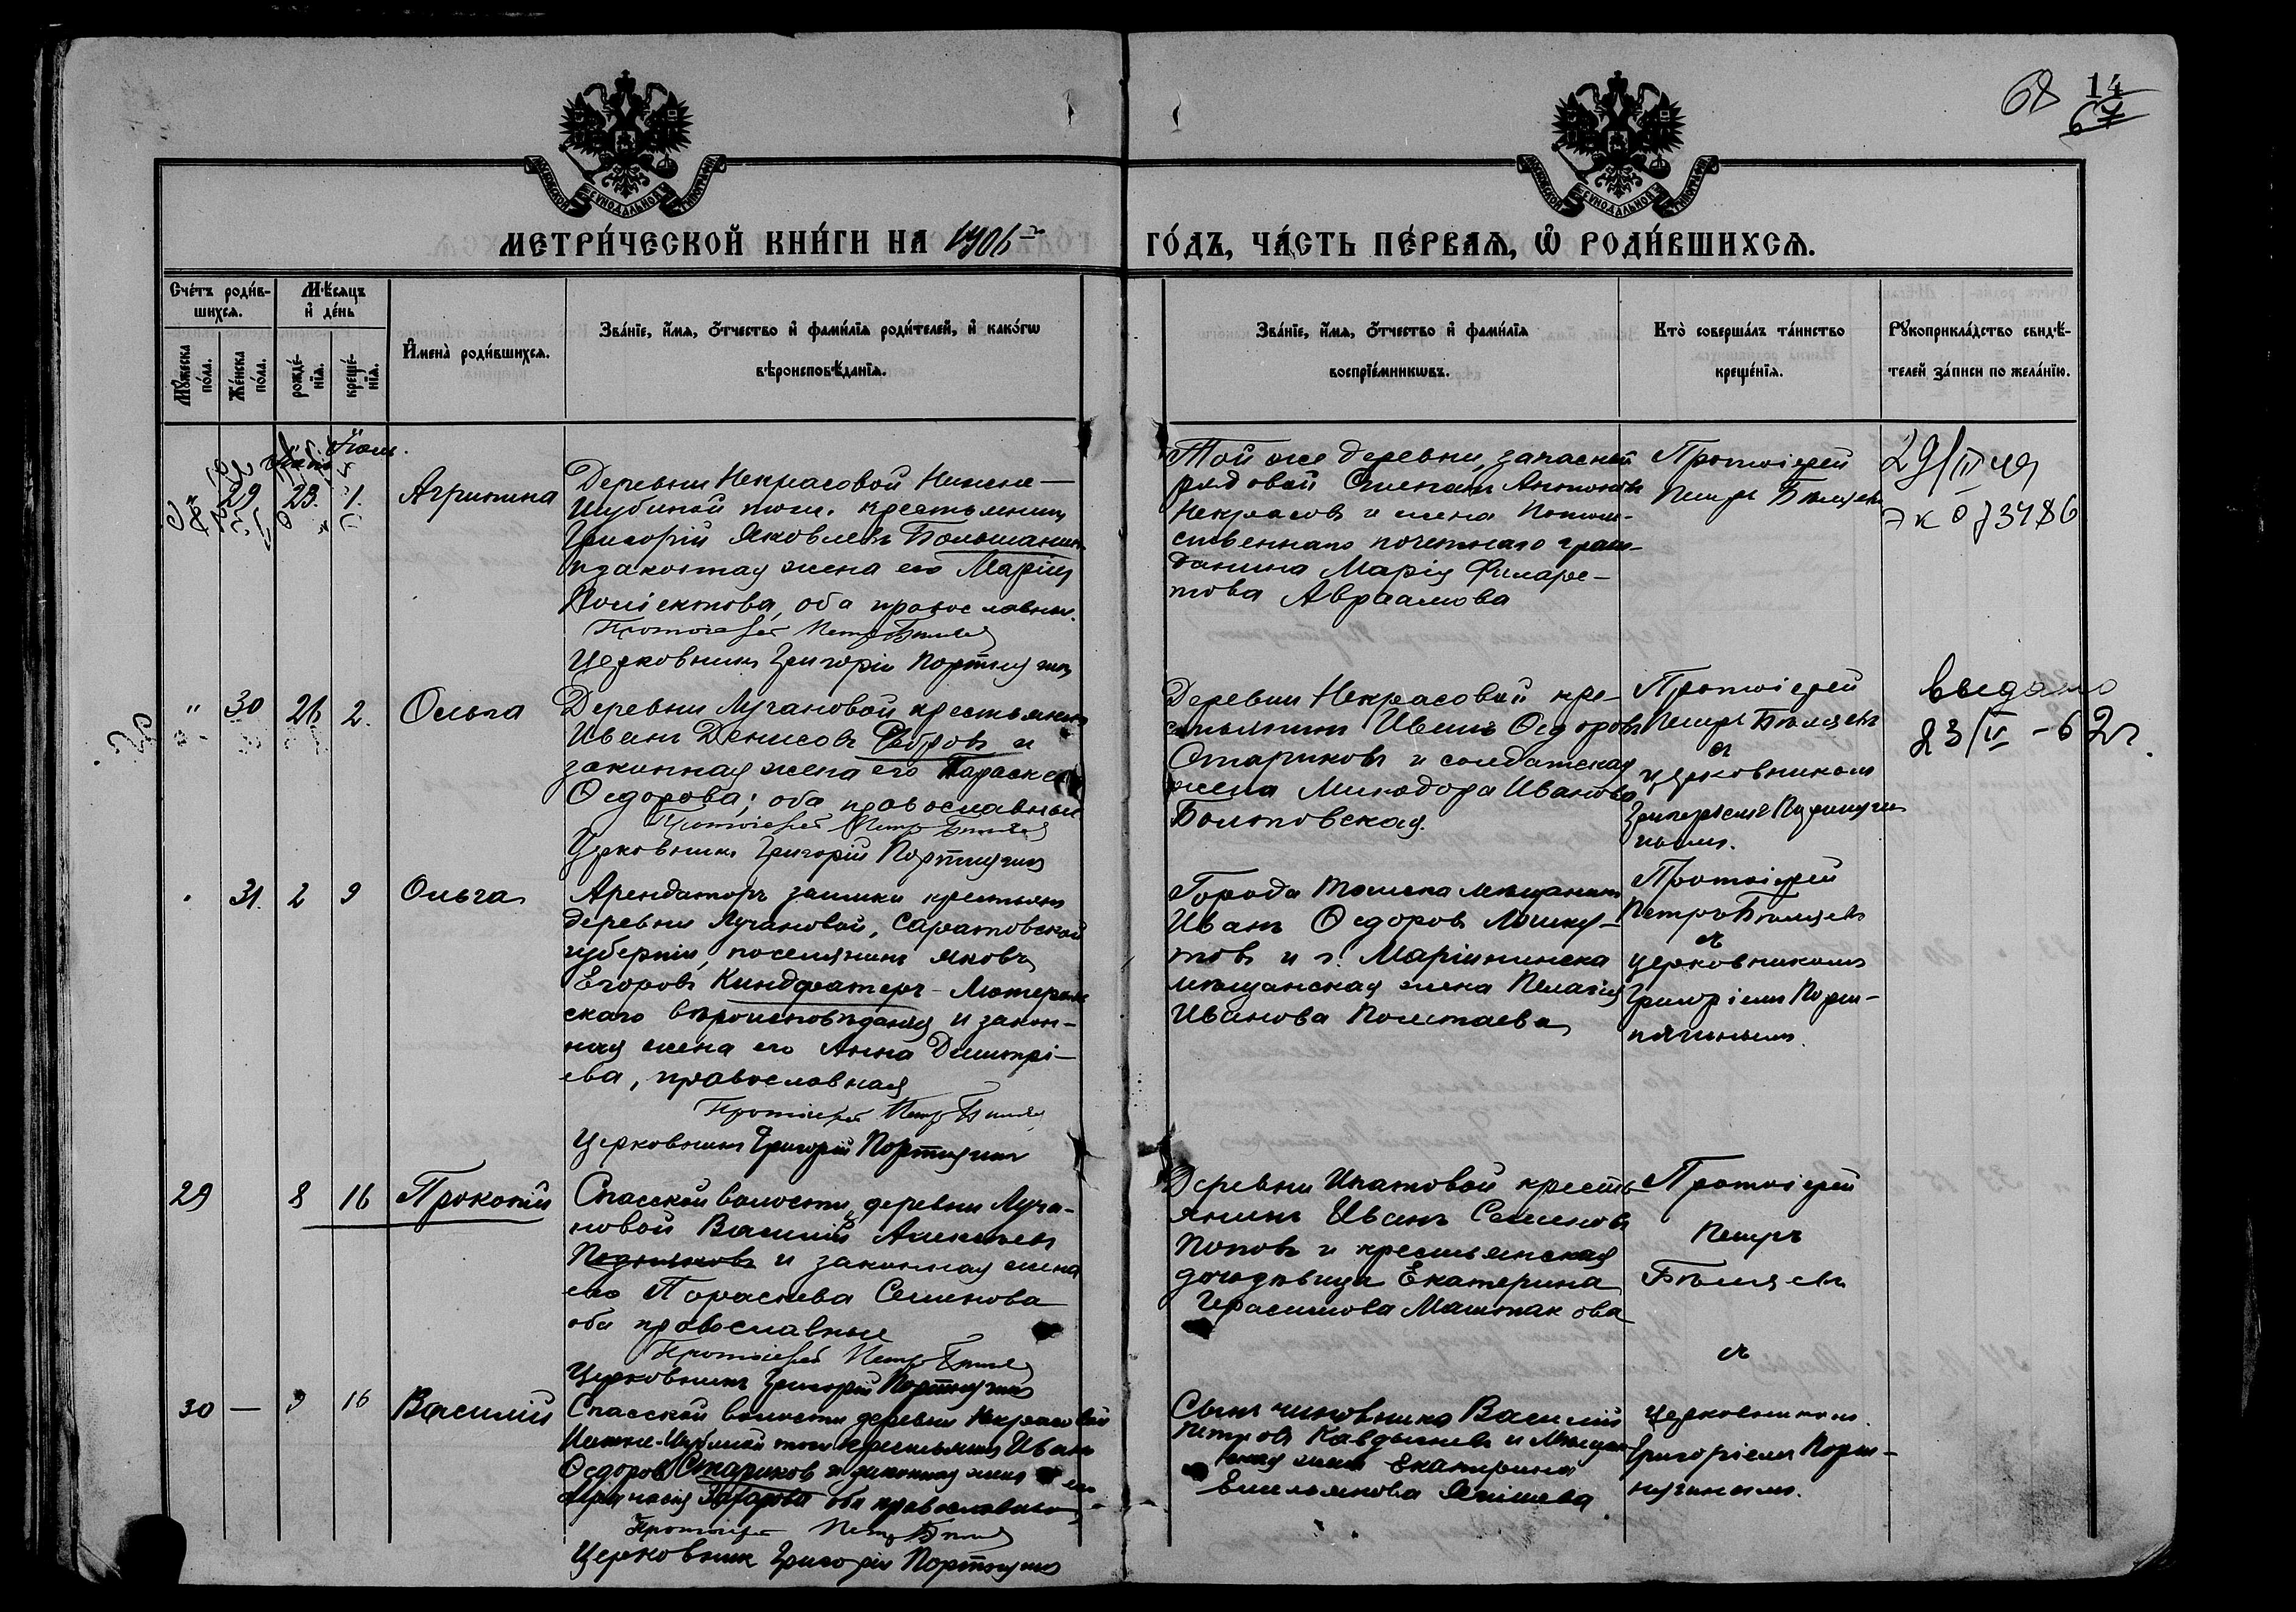 68 14
67
МЕТРИ́ЧЕСКОЙ КНИ́ГИ НА 1906 ГО́ДЪ, ЧА́СТЬ ПЕ́РВАѦ, Ѽ РОДИ́ВШИХСѦ.
Сче́тъ роди́в-
шихсѧ.
Мꙋ́жеска по́ла.
Же́нска по́ла.
Мѣ́сѧцъ
и҆ де́нь
рожде́-
нїѧ.
креще́-
нїѧ.
И҆мена̀ роди́вшихсѧ.
Зва́нїе, и҆́мѧ, о҆́тчество и҆ фами́лїѧ роди́телей, и҆ како́гѡ
вѣроисповѣ́данїѧ.
Зва́нїе, и҆́мѧ, о҆́тчество и҆ фами́лїѧ
воспрїе́мникѡвъ.
Кто̀ соверша́лъ та́инство
креще́нїѧ.
Рꙋкоприкла́дство свидѣ́-
телей за́писи по жела́нїю.
29 23. 1.
Агрипина
Деревни Некрасовой Нижне-
Шубиной тож. крестьянинъ
Григорій Яковлевъ
жена его Марія
Поліектова, оба православные.
Протоіерей Петръ Бѣляевъ
Церковникъ Григорій Портнягинъ
Той же деревни, запасной
рядовой Степанъ Антоновъ
Некрасовъ и жена Потом-
ственнаго почетнаго граж-
данина Марія Филаре-
това Авраамова
Протоіерей
Петръ Бѣляевъ
" 30 26 2.
Ольга
Деревни Лучановой крестьянинъ
Иванъ Денисовъ и
законная жена его Параскева
Ѳедорова; оба православные
Протоіерей Петръ Бѣляевъ
Церковникъ Григорій Портнягинъ
Деревни Некрасовой кре-
стьянинъ Иванъ Ѳедоровъ
Стариковъ и солдатская
жена Миладора Иванова
Болтовская.
Протоіерей
Петръ Бѣляевъ
съ
церковникомъ
Григоріемъ Портняги-
нымъ.
выдано
23/V -62г.
31. 2 9
Ольга
Арендаторъ заимки крестьянъ
деревни Лучановой, Саратовской
губерніи, поселянинъ Яковъ
Егоровъ Киндфатеръ - Лютеран-
скаго вѣроисповѣданія и закон-
ная жена его Анна Димитрі-
ева, православная
Протоіерей Петръ Бѣляевъ
Церковникъ Григорій Портнягинъ
Города Томска мѣщанинъ
Иванъ Ѳедоровъ
и г. Маріинска
мѣщанская жена Пелагія
Иванова Полтаева
Протоіерей
Петръ Бѣляевъ
съ
церковникомъ
Григоріемъ Порт-
нягинымъ.
29 8 16
Прокопій
Спасской волости, деревни Луча-
новой Василій Алексѣевъ
и законная жена
его Параскева Семенова
оба православные
Протоіерей Петръ Бѣляевъ
Церковникъ Григорій Портнягинъ
Деревни Ипатовой кресть-
янинъ Иванъ Семеновъ
Поповъ и крестьянская
дочь дѣвица Екатерина
Герасимова Машпакова
Протоіерей
Петръ
Бѣляевъ
съ
30 — 9 16
Василій
Спасской волости деревни Некрасовой
Нижне-Шубиной тож крестьянинъ Иванъ
Ѳедоровъ Стариковъ и законная жена его
Захарова оба православные
Протоіерей Петръ Бѣляевъ
Церковникъ Григорій Портнягинъ
Сынъ чиновника Василій
Петровъ и мѣщан-
ская жена Екатерина
Емельянова
церковникомъ
Григоріемъ Порт-
нягинымъ.